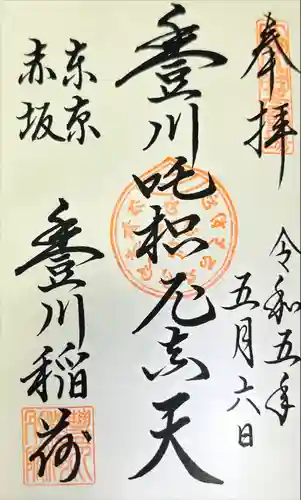 奉拝
令和五年
五月六日
豊川吒枳尼真天
東京
赤坂
豊川稲荷